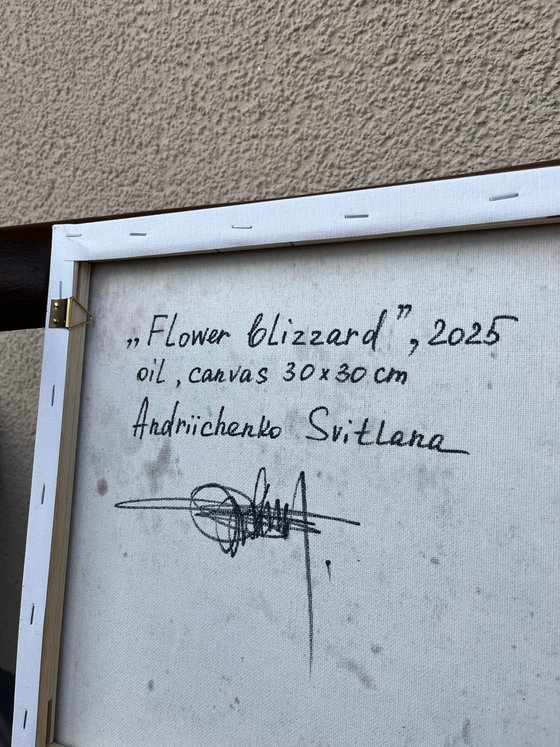 „Flower blizzard”, 2025
oil, canvas 30x30 cm
Andriichenko Svitlana